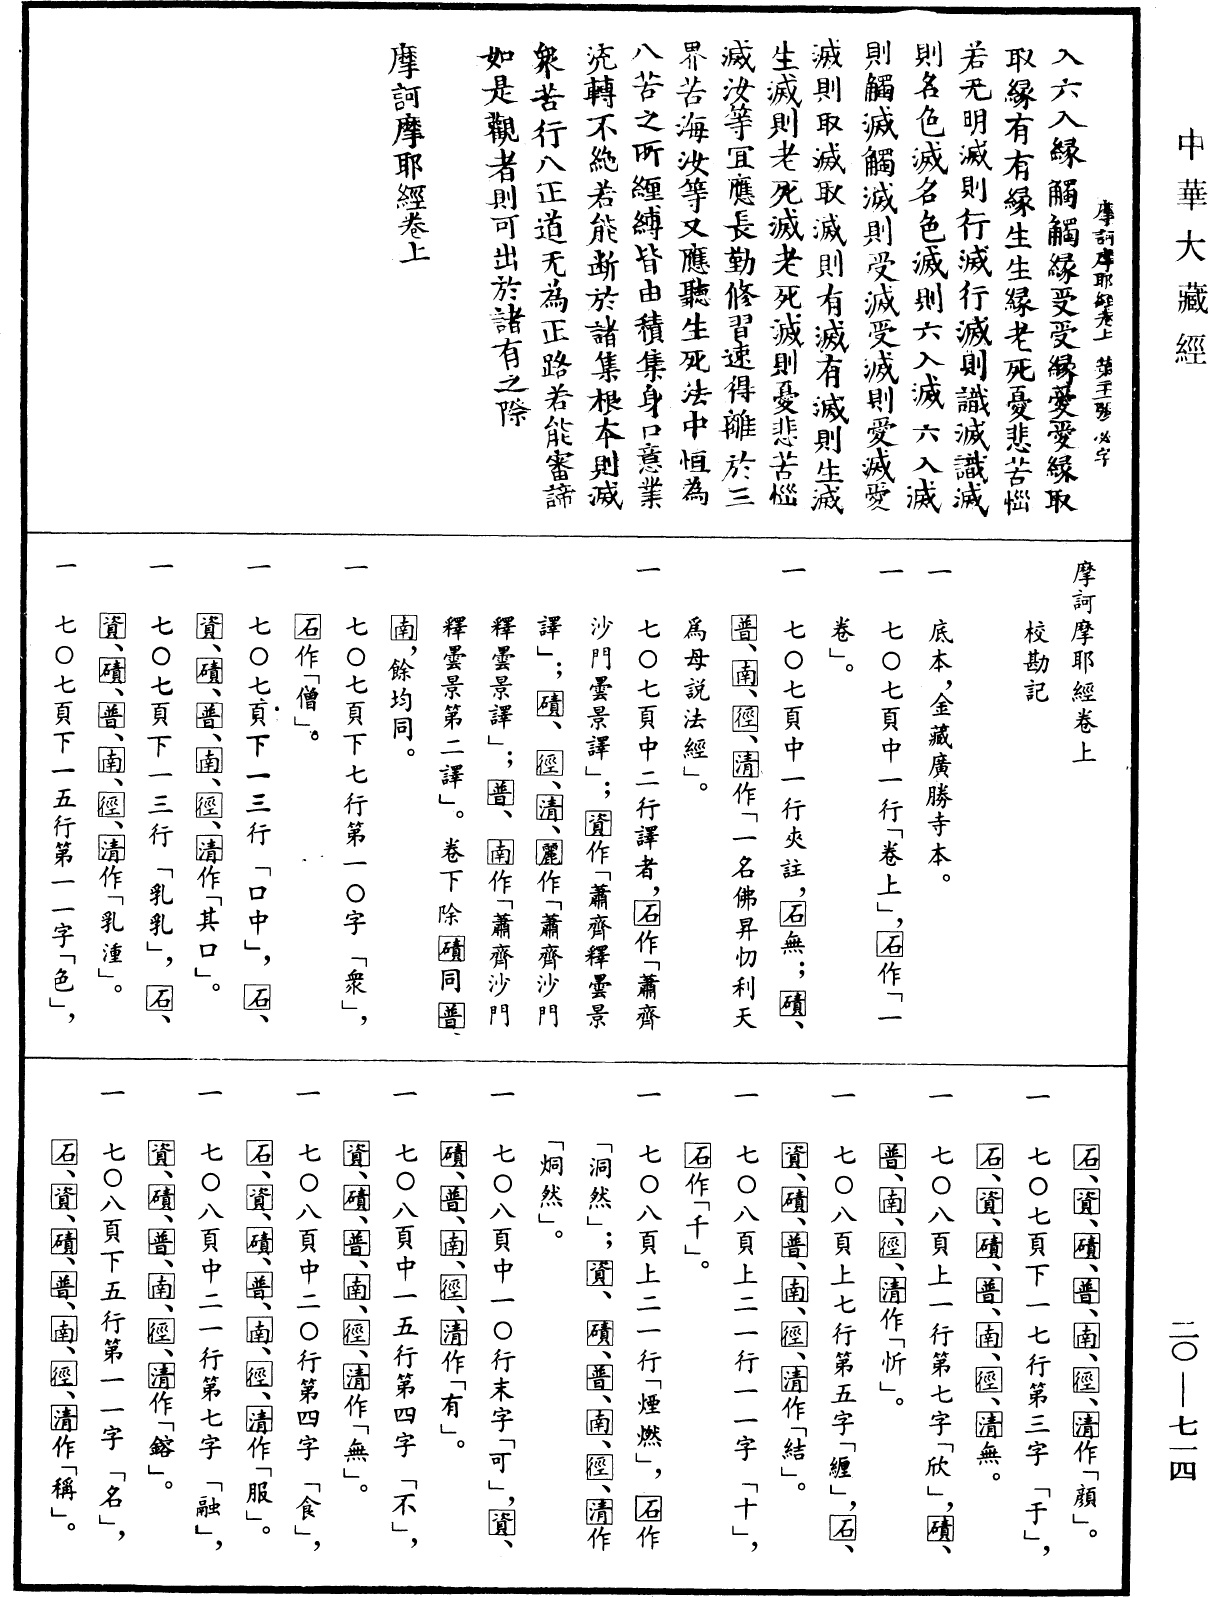 中華大藏經
摩訶摩耶經卷上　第二十一張　必字
入六入緣觸觸緣受受緣愛愛緣取
取緣有有緣生生緣老死憂悲苦惱
若无明滅則行滅行滅則識滅識滅
則名色滅名色滅則六入滅六入滅
則觸滅觸滅則受滅受滅則愛滅愛
滅則取滅取滅則有滅有滅則生滅
生滅則老死滅老死滅則憂悲苦惱
滅汝等宜應長勤修習速得離於三
界苦海汝等又應聽生死法中恒為
八苦之所纏縛皆由積集身口意業
流轉不絶若能断於諸集根本則滅
衆苦行八正道无為正路若能審諦
如是觀者則可出於諸有之際
摩訶摩耶經卷上
摩訶摩耶經卷上
校勘記
一　底本，金藏廣勝寺本。
一　七〇七頁中一行「卷上」，石作「一
卷」。
一　七〇七頁中一行夾註，石無；磧、
普、南、徑、清作「一名佛昇忉利天
爲母説法經」。
一　七〇七頁中二行譯者，石作「蕭齊
沙門曇景譯」；資作「蕭齊釋曇景
譯」；磧、徑、清、麗作「蕭齊沙門
釋曇景譯」；普、南作「蕭齊沙門
釋曇景第二譯」。卷下除磧同普、
南，餘均同。
一　七〇七頁下七行第一〇字「衆」，
石作「僧」。
一　七〇七頁下一三行「口中」，石、
資、磧、普、南、徑、清作「其口」。
一　七〇七頁下一三行「乳乳」，石、
資、磧、普、南、徑、清作「乳湩」。
一　七〇七頁下一五行第一一字「色」，
石、資、磧、普、南、徑、清作「顔」。
一　七〇七頁下一七行第三字「于」，
石、資、磧、普、南、徑、清無。
一　七〇八頁上一行第七字「欣」，磧、
普、南、徑、清作「忻」。
一　七〇八頁上七行第五字「纏」，石、
資、磧、普、南、徑、清作「結」。
一　七〇八頁上二一行一一字「十」，
石作「千」。
一　七〇八頁上二一行「煙燃」，石作
「洞然」；資、磧、普、南、徑、清作
「烔然」。
一　七〇八頁中一〇行末字「可」，資、
磧、普、南、徑、清作「有」。
一　七〇八頁中一五行第四字「不」，
資、磧、普、南、徑、清作「無」。
一　七〇八頁中二〇行第四字「食」，
石、資、磧、普、南、徑、清作「服」。
一　七〇八頁中二一行第七字「融」，
資、磧、普、南、徑、清作「鎔」。
一　七〇八頁下五行第一一字「名」，
石、資、磧、普、南、徑、清作「稱」。
二〇—七一四